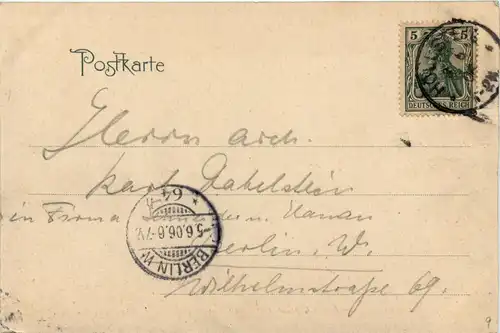 Postkarte
5 5
DEUTSCHES REICH
Herrn Arch.
Karl Dabelstein
in Firma
Berlin. W.
Wilhelmstraße 69.
BERLIN W.
5.6.06.6-7V.
* 64 a